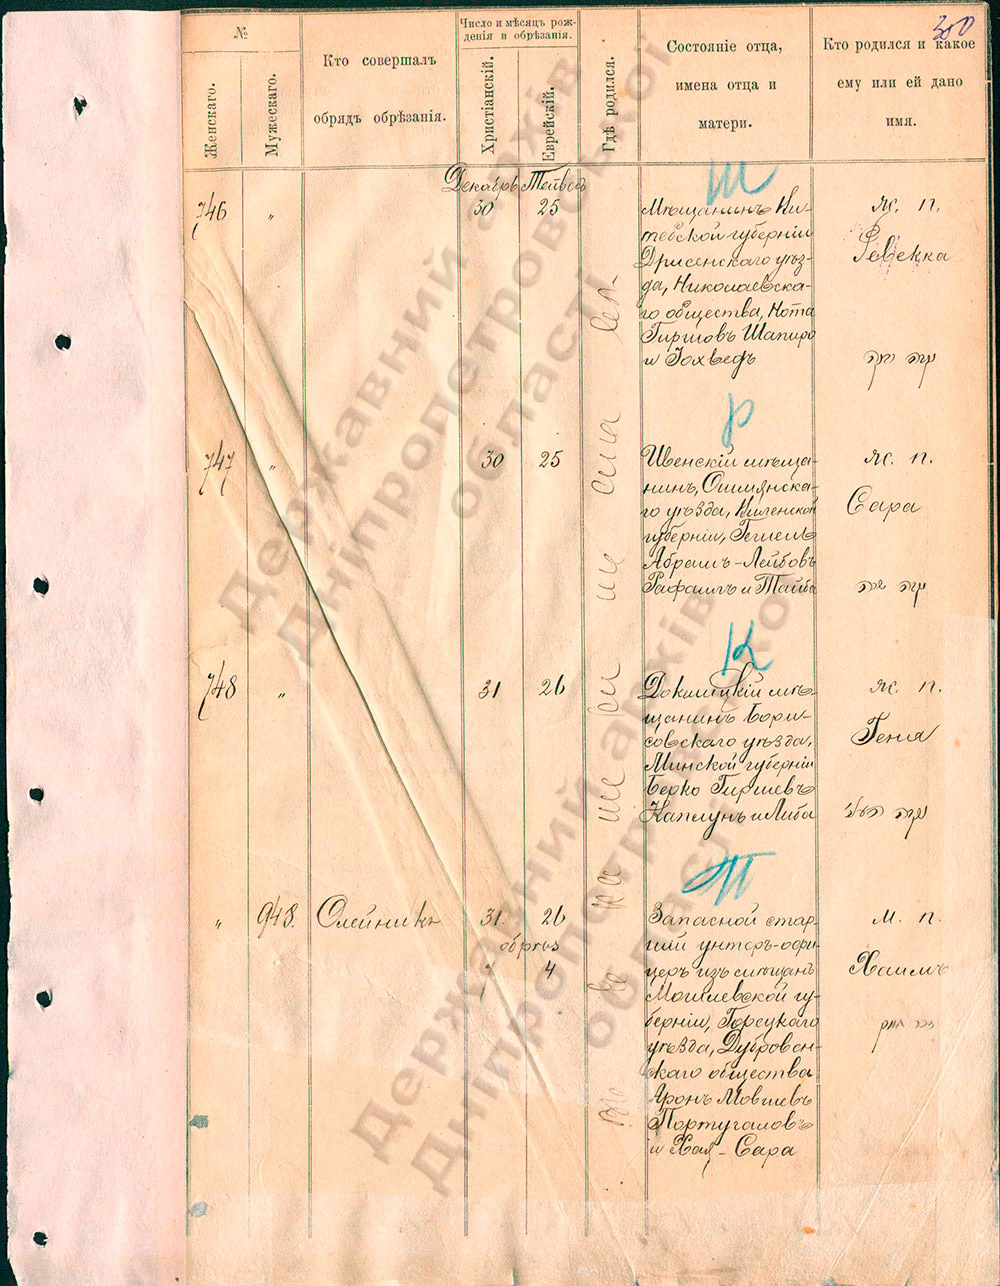 300
№
Женскаго.
Мужескаго.
Кто совершалъ
обрядъ обрѣзанія.
Число и мѣсяцъ рож-
денія и обрѣзанія.
Христіанскій.
Еврейскій.
Гдѣ родился.
Состояніе отца,
имена отца и
матери.
Кто родился и какое
ему или ей дано
имя.
Декабрь Тейвесъ
Ш
746 „ 30 25
Мѣщанинъ Ви-
тебской губерніи
Дрисенскаго уѣз-
да, Николаевска-
го общества, Нота
Гиршовъ Шапиро
и Іохведъ
Ж. п.
Ревекка
Р
747 „ 30 25
Ивенскій мѣща-
нинъ, Ошмянска-
го уѣзда, Виленской
губерніи, Гешель
Абрамъ-Лейбовъ
Рафаилъ и Тайба
Ж. п.
Сара
К
748 „ 31 26
Докшицкій мѣ-
щанинъ Бори-
совскаго уѣзда,
Минской губерніи
Берко Гиршевъ
Каплунъ и Либа
Ж. п.
Геня
П
„ 948. Олейникъ 31 26
обрѣз
7 4
Запасной стар-
шій унтеръ-офи-
церъ изъ мѣщанъ
Могилевской гу-
берніи, Горецкаго
уѣзда, Дубровен-
скаго общества
Аронъ Мовшевъ
Португаловъ
и Хая-Сара
М. п.
Хаимъ
Державний архів
Дніпропетровської
області
Державний архів
Дніпропетровської
області